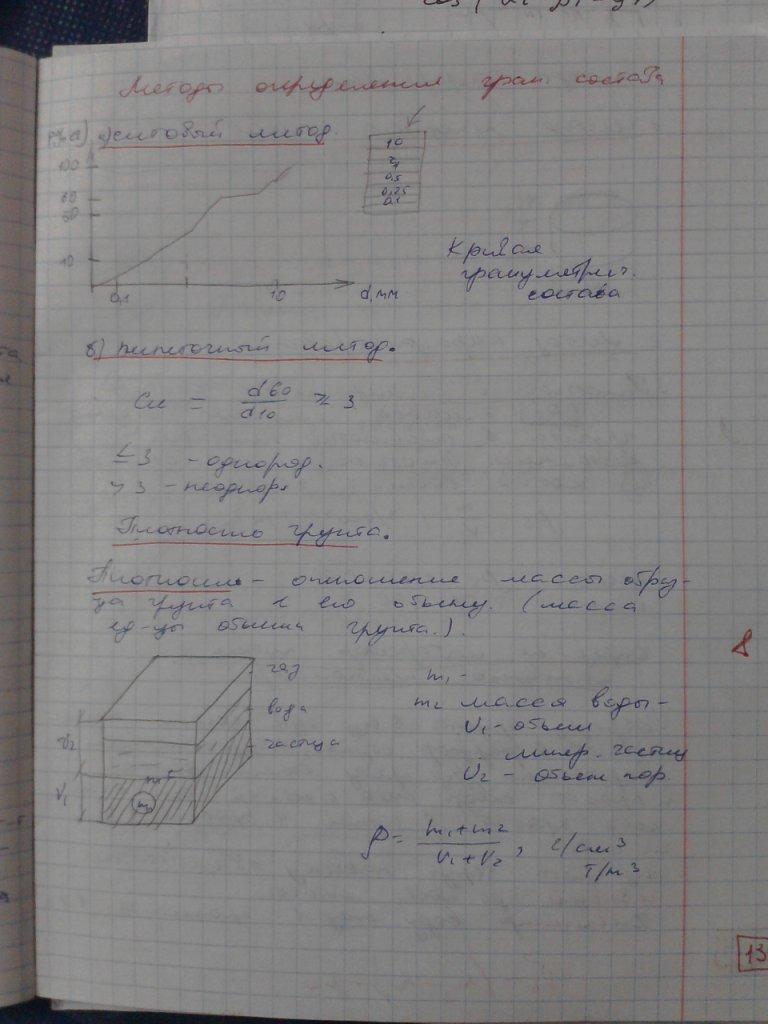 Методы определения гран. состава
а) ситовый метод.
100
60
50
10
0,1
10
d, мм
10
2
0,5
0,25
0,1
Кривая
гранулметрич.
состава
б) пипеточный метод.
Cu = d60/d10 ≥ 3
≤ 3 - однород.
> 3 - неоднор.
Плотность грунта.
Плотность - отношение массы обра-
ца грунта к его объему. (масса
ед-цы объема грунта.).
газ
вода
частица
V2
V1
m1
m1 -
m2 масса воды -
V1 - объем
минер. частиц
V2 - объем пор.
ρ = m1+m2 / V1+V2 , г/см3
т/м3
8
13